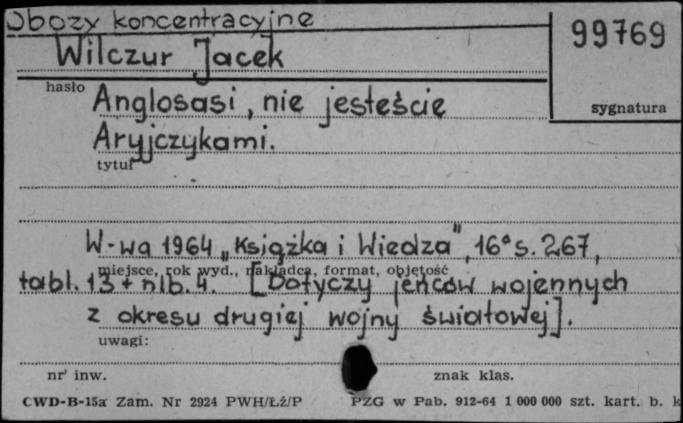 Obozy koncentracyjne
99769
Wilczur Jacek
hasło
sygnatura
Anglosasi, nie jesteście
Aryjczykami.
tytuł
W-wa 1964 „Książka i Wiedza”, 16° s. 267,
miejsce, rok wyd., nakładca, format, objętość
tabl. 13 + nlb. 4. [Dotyczy jeńców wojennych
z okresu drugiej wojny światowej].
uwagi:
nr inw.
znak klas.
CWD-B-15a Zam. Nr 2924 PWH/Łż/P
PZG w Pab. 912-64 1 000 000 szt. kart. b. k